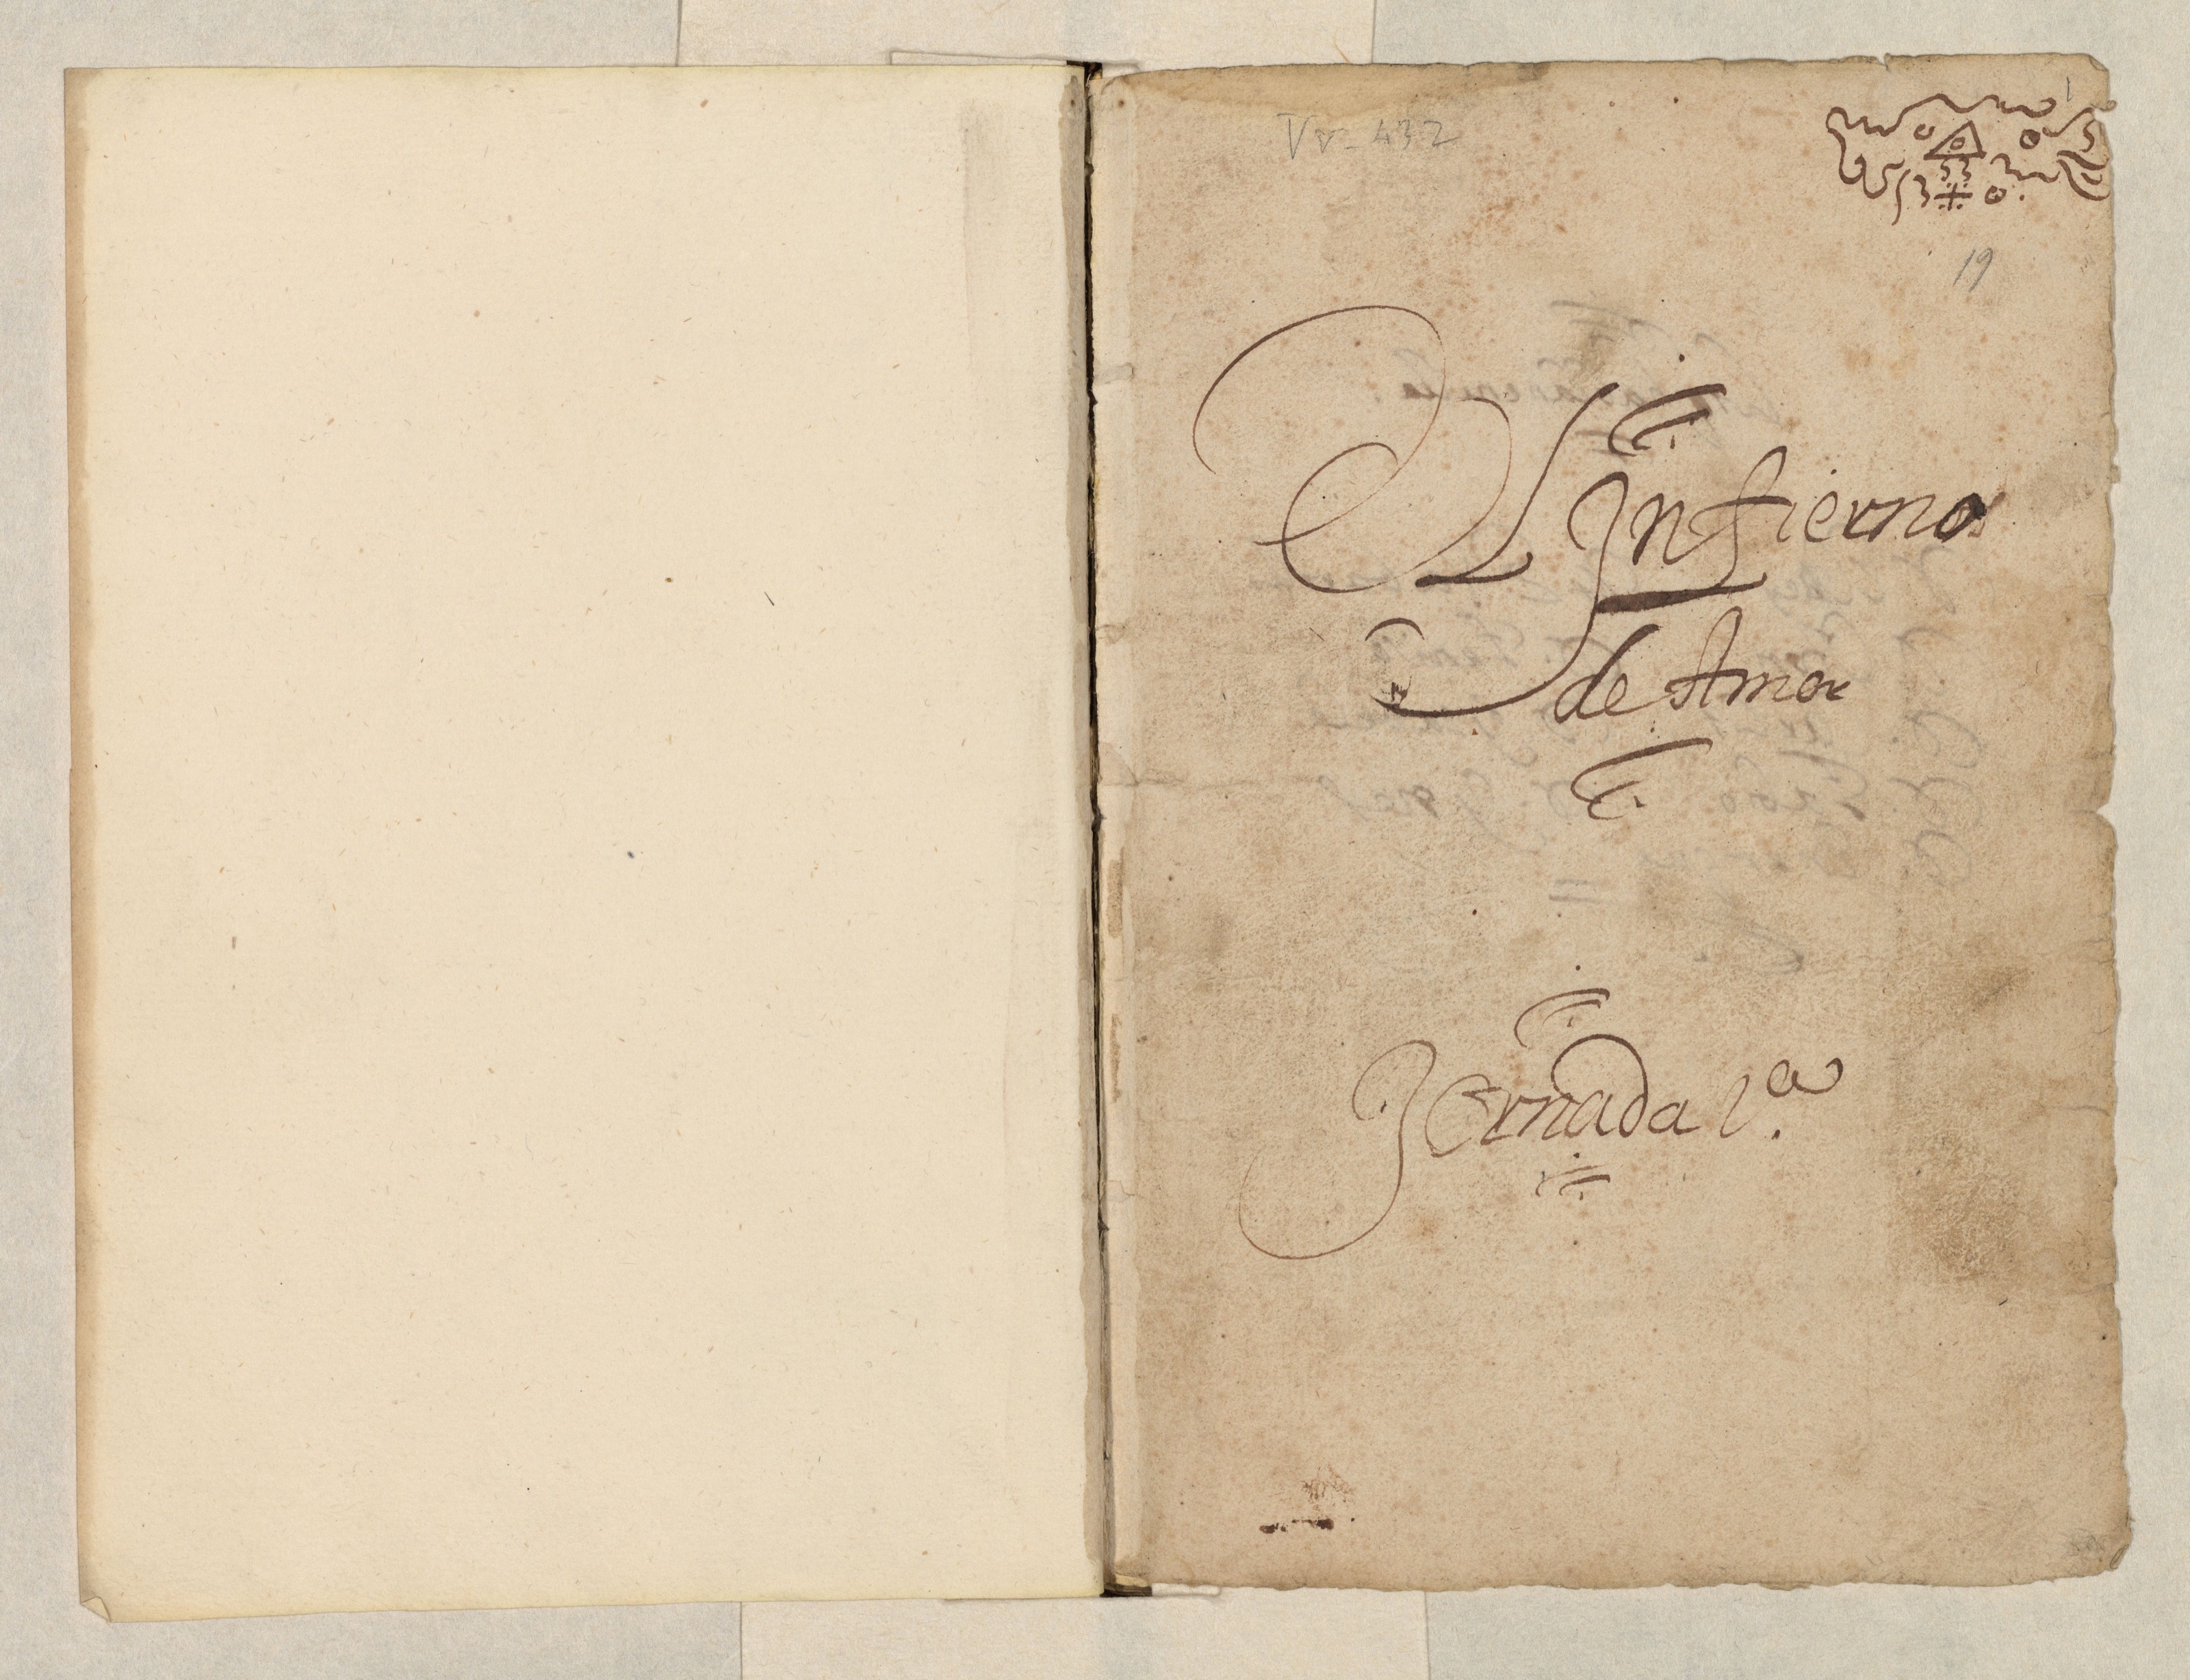 1
Vv-432
19
El Infierno
de Amor
Jornada 1ª.